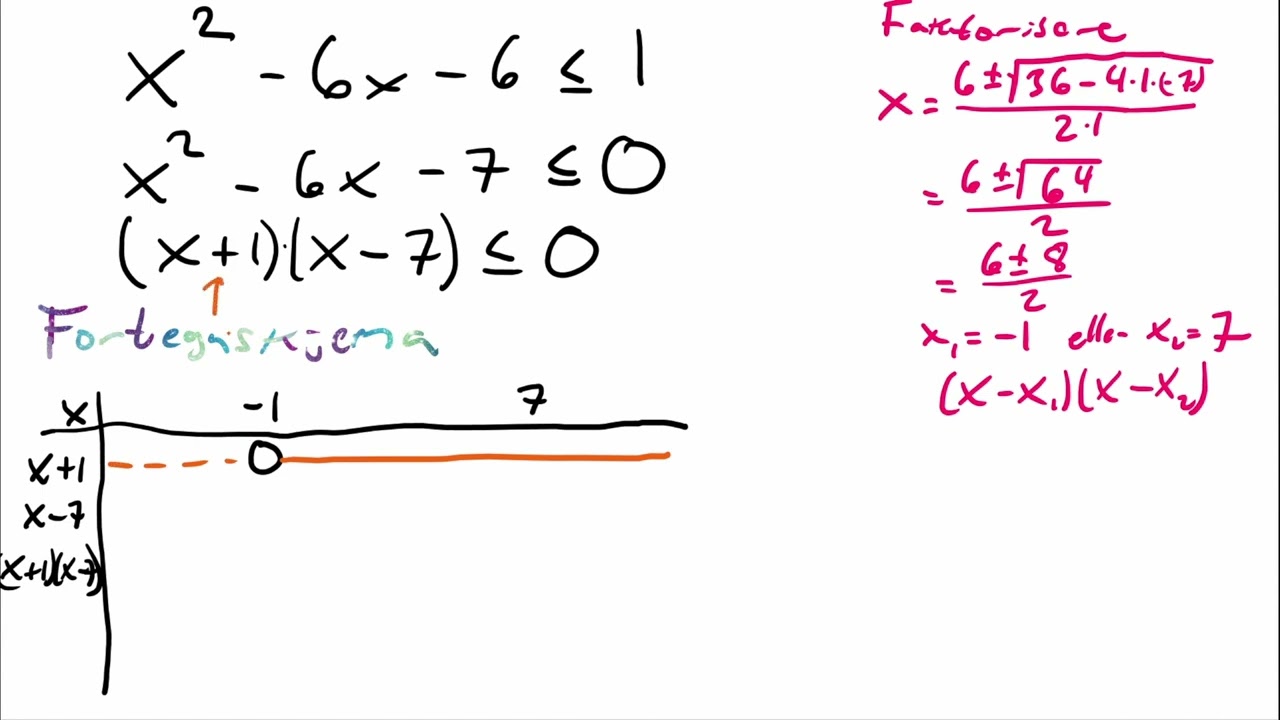 x² - 6x - 6 ≤ 1
x² - 6x - 7 ≤ 0
(x+1)·(x-7) ≤ 0
Fortegnsskjema
x -1 7
x+1 0
x-7
(x+1)(x-7)
Faktorisere
x = (6±√(36-4·1·(-7)))/(2·1)
= (6±√64)/2
= (6±8)/2
x₁=-1 eller x₂=7
(x-x₁)(x-x₂)